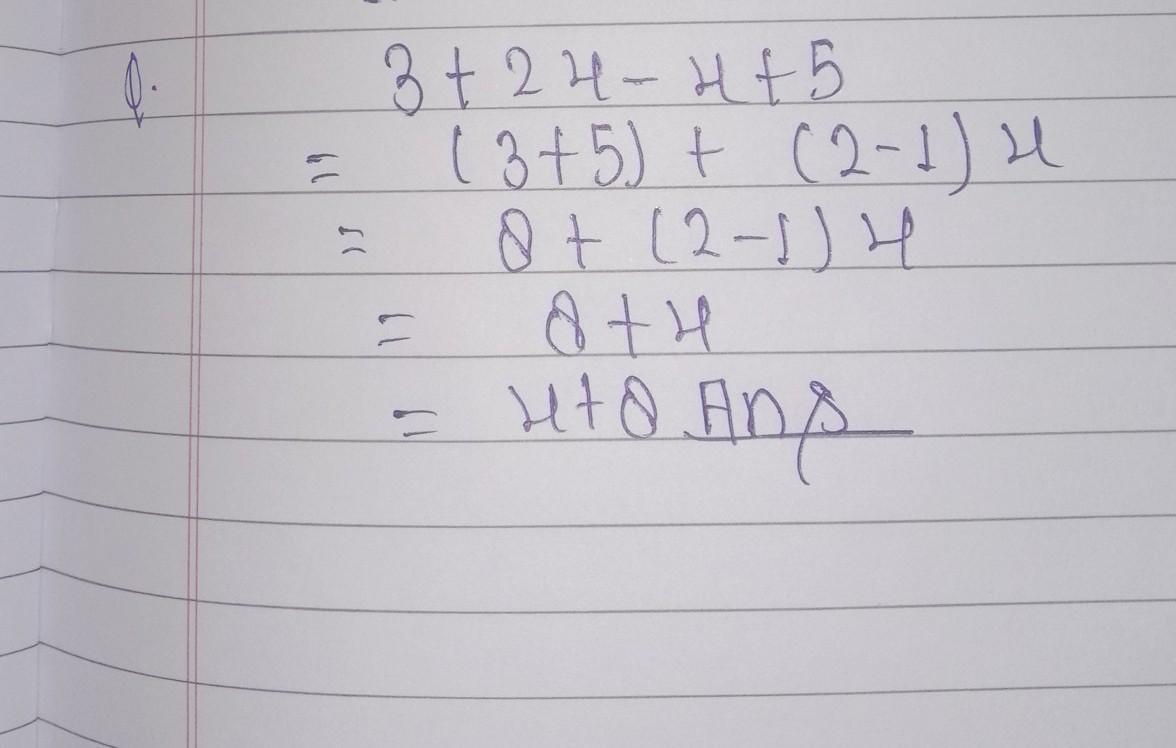 Q. 3 + 2x - x + 5
= (3+5) + (2-1) x
= 8 + (2-1) x
= 8 + x
= x + 8 Ans